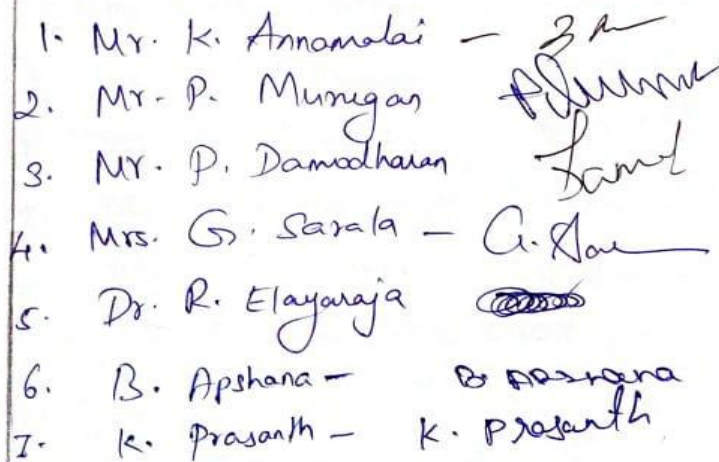 1. Mr. K. Annamalai –
2. Mr. P. Murugan
3. Mr. P. Damodharan
4. Mrs. G. Sarala – G. Sar
5. Dr. R. Elayaraja
6. B. Apshana – B. Apshana
7. K. Prasanth – K. Prasanth